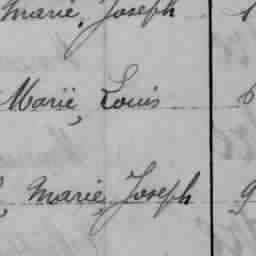 Marie, Joseph
Marie, Louis
Marie, Joseph 9